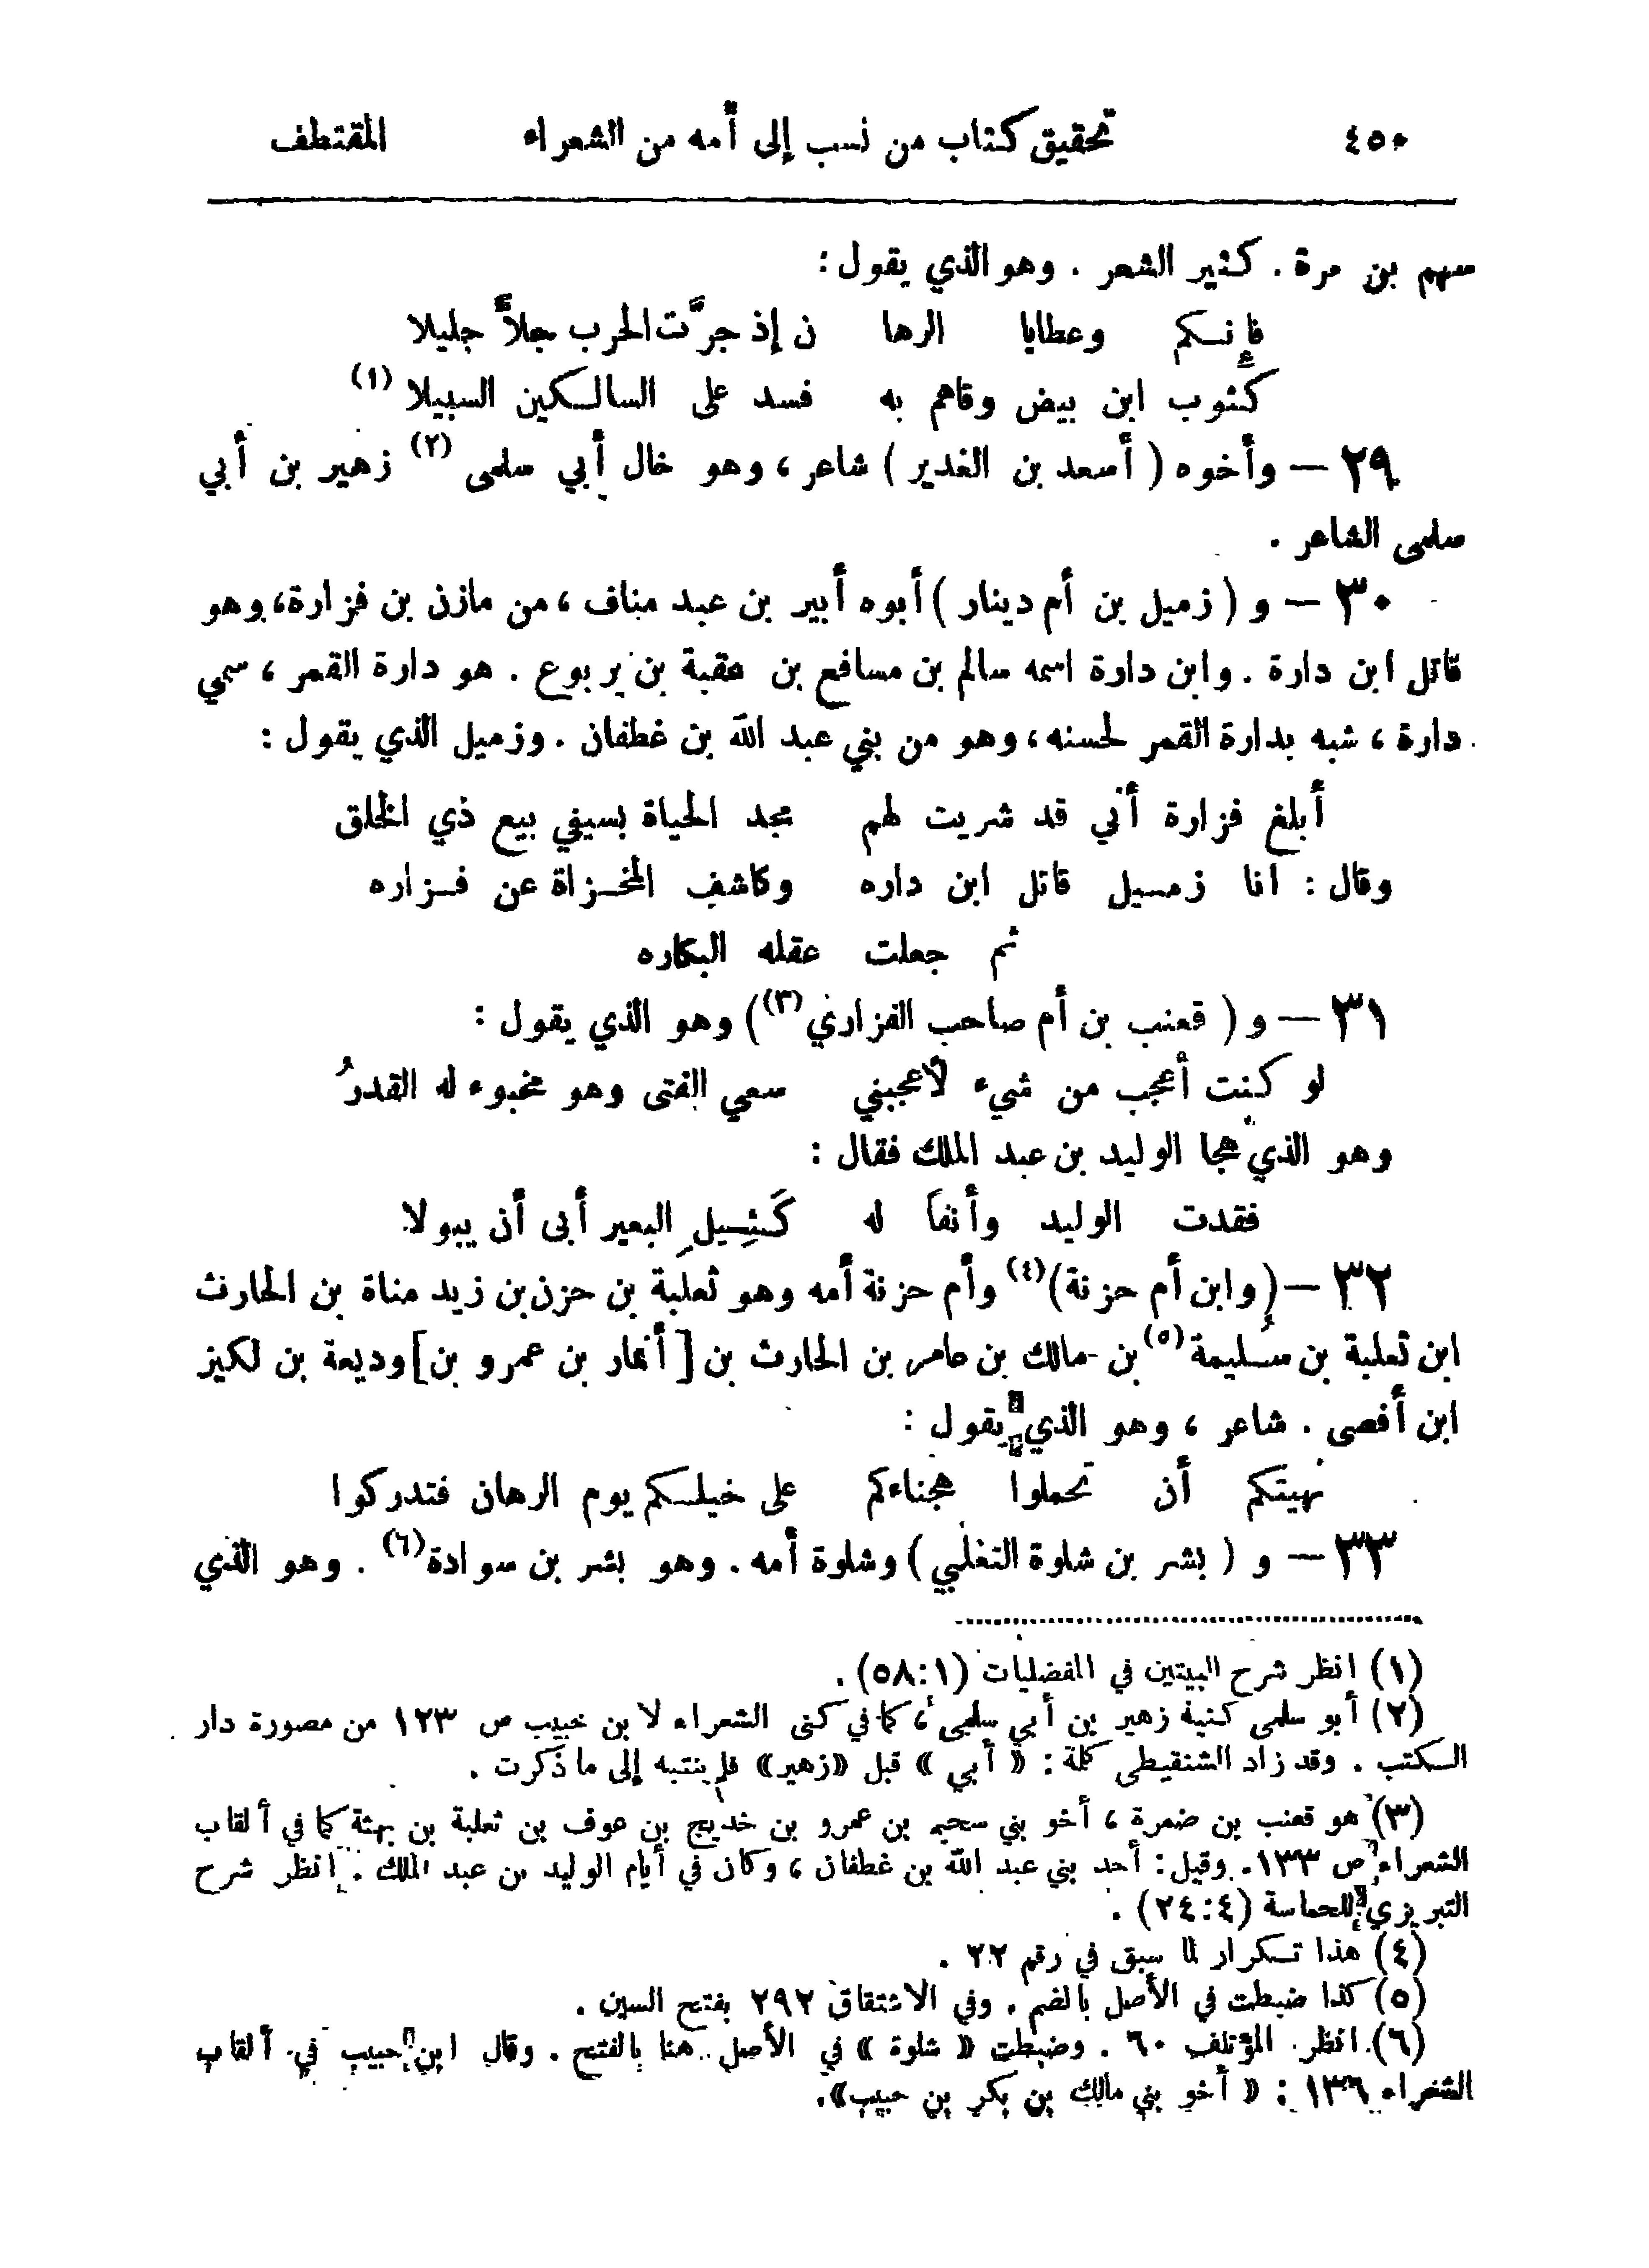 ٤٥٠ تحقيق كتاب من نسب إلى أمه من الشعراء المقتطف
سهم بن مرة . كثير الشعر . وهو الذي يقول :
فإنكم وعطايا الرها ن إذ جرَّت الحرب جلاً جليلا
كثوب ابن بيض وقاهم به فسد على السالكين السبيلا (١)
٢٩ — وأخوه ( أسعد بن الغدير ) شاعر ، وهو خال أبي سلمى (٢) زهير بن أبي
سلمى الشاعر .
٣٠ — و ( زميل بن أم دينار ) أبوه أبير بن عبد مناف ، من مازن بن فزارة ، وهو
قاتل ابن دارة . وابن دارة اسمه سالم بن مسافع بن عقبة بن يربوع . هو دارة القمر ، سمي
دارة ، شبه بدارة القمر لحسنه ، وهو من بني عبد الله بن غطفان . وزميل الذي يقول :
أبلغ فزارة أني قد شريت لهم مجد الحياة بسيفي بيع ذي الخلق
وقال : انا زميل قاتل ابن داره وكاشف المخزاة عن فزاره
ثم جعلت عقله البكاره
٣١ — و ( قعنب بن أم صاحب الفزاري (٣) ) وهو الذي يقول :
لو كنت أعجب من شيء لأعجبني سعي الفتى وهو مخبوء له القدرُ
وهو الذي هجا الوليد بن عبد الملك فقال :
فقدت الوليد وأنفاً له كَثِيلِ البعير أبى أن يبولا
٣٢ — (وابن أم حزنة) (٤) وأم حزنة أمه وهو ثعلبة بن حزن بن زيد مناة بن الحارث
ابن ثعلبة بن سُليمة (٥) بن مالك بن عامر بن الحارث بن [ أنمار بن عمرو بن ] وديعة بن لكيز
ابن أفصى . شاعر ، وهو الذي يقول :
نهيتكم أن تحملوا هجناءكم على خيلكم يوم الرهان فتدركوا
٣٣ — و ( بشر بن شلوة التغلبي ) وشلوة أمه . وهو بشر بن سوادة (٦) . وهو الذي
(١) انظر شرح البيتين في المفضليات (٥٨:١) .
(٢) أبو سلمى كنية زهير بن أبي سلمى ، كما في كنى الشعراء لابن حبيب ص ١٢٣ من مصورة دار
الكتب . وقد زاد الشنقيطى كلمة : « أبي » قبل «زهير» فلم ينتبه إلى ما ذكرت .
(٣) هو قعنب بن ضمرة ، أخو بني سحيم بن عمرو بن خديج بن عوف بن ثعلبة بن بهثة كما في ألقاب
الشعراء ص ١٣٣ . وقيل : أحد بني عبد الله بن غطفان ، وكان في أيام الوليد بن عبد الملك . انظر شرح
التبريزي للحماسة (٢٤:٤) .
(٤) هذا تكرار لما سبق في رقم ٢٢ .
(٥) كذا ضبطت في الأصل بالضم . وفي الاشتقاق ٢٩٢ بفتح السين .
(٦) انظر المؤتلف ٦٠ . وضبطت « شلوة » في الأصل هنا بالفتح . وقال ابن حبيب في ألقاب
الشعراء ١٣٦ : « أخو بني مالك بن بكر بن حبيب» .